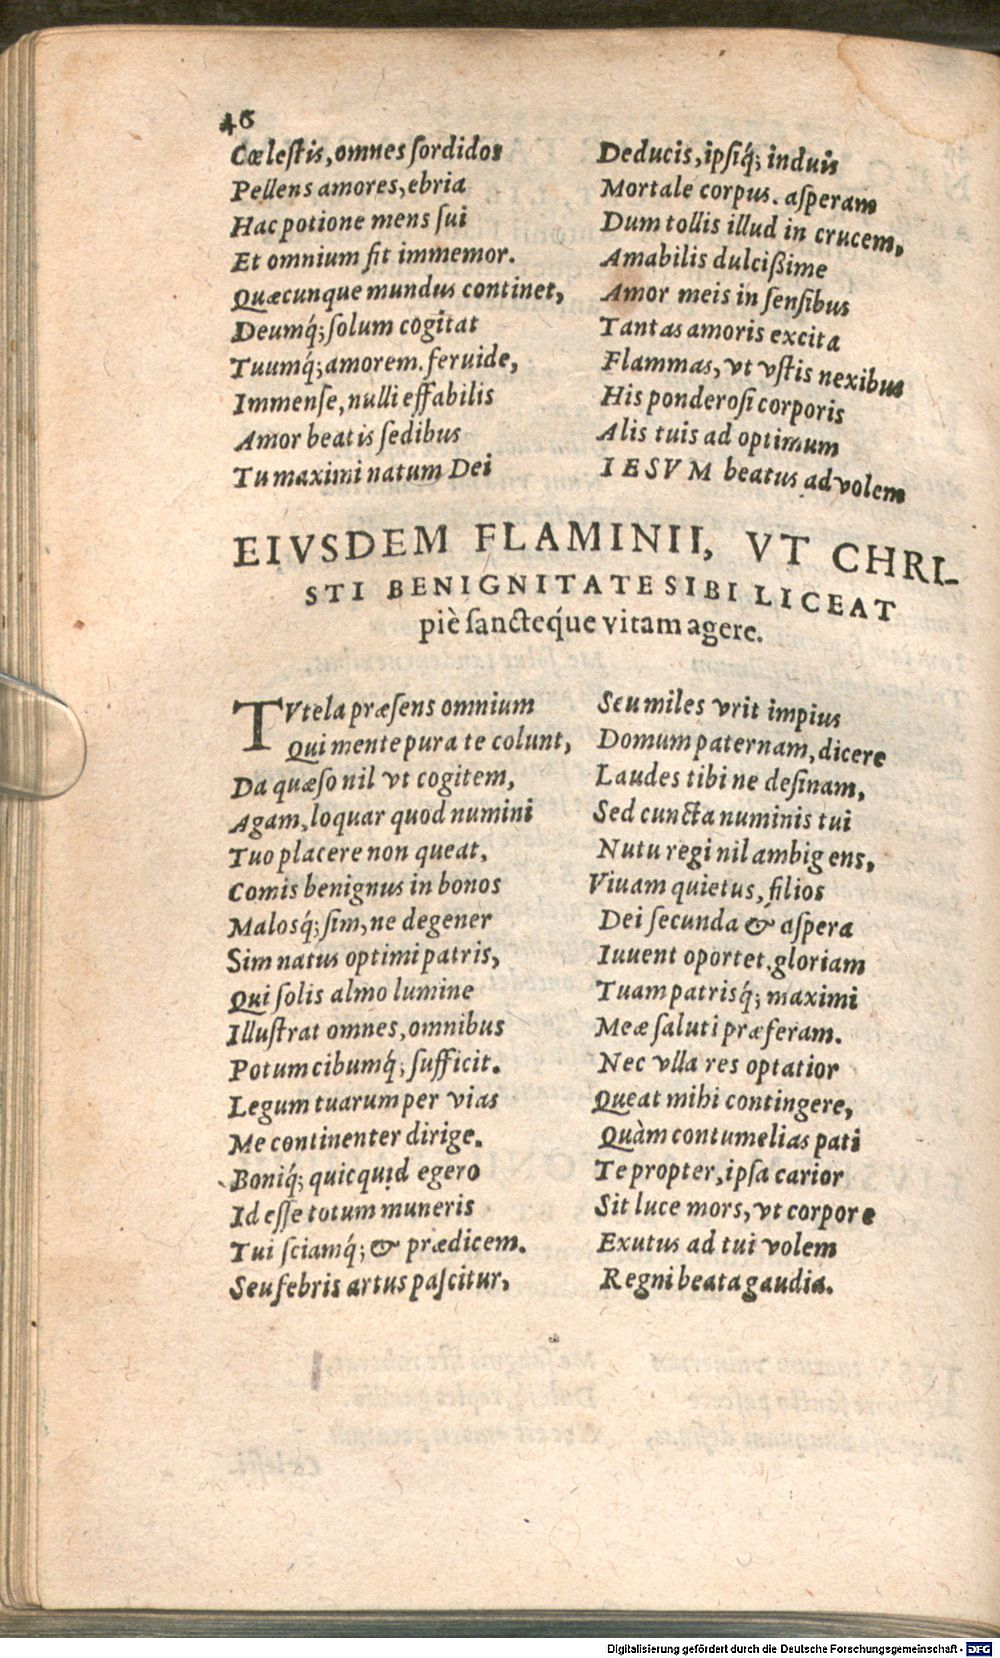 46
Cœlestis, omnes sordidos
Pellens amores, ebria
Hac potione mens sui
Et omnium fit immemor.
Quæcunque mundus continet,
Deumq́; solum cogitat
Tuumq́; amorem. feruide,
Immense, nulli effabilis
Amor beatis sedibus
Tu maximi natum Dei
Deducis, ipsiq́; induis
Mortale corpus. asperam
Dum tollis illud in crucem,
Amabilis dulcißime
Amor meis in sensibus
Tantas amoris excita
Flammas, vt vstis nexibus
His ponderosi corporis
Alis tuis ad optimum
IESVM beatus aduolem
EIVSDEM FLAMINII, VT CHRI-
STI BENIGNITATE SIBI LICEAT
piè sancteq́ue vitam agere.
TVtela præsens omnium
Qui mente pura te colunt,
Da quæso nil vt cogitem,
Agam, loquar quod numini
Tuo placere non queat,
Comis benignus in bonos
Malosq́; sim, ne degener
Sim natus optimi patris,
Qui solis almo lumine
Illustrat omnes, omnibus
Potum cibumq́; sufficit.
Legum tuarum per vias
Me continenter dirige.
Boniq́; quicquid egero
Id esse totum muneris
Tui sciamq́; & prædicem.
Seu febris artus pascitur,
Seu miles vrit impius
Domum paternam, dicere
Laudes tibi ne desinam,
Sed cuncta numinis tui
Nutu regi nil ambigens,
Viuam quietus, filios
Dei secunda & aspera
Iuuent oportet. gloriam
Tuam patrisq́; maximi
Meæ saluti præferam.
Nec vlla res optatior
Queat mihi contingere,
Quàm contumelias pati
Te propter, ipsa carior
Sit luce mors, vt corpore
Exutus ad tui volem
Regni beata gaudia.
Digitalisierung gefördert durch die Deutsche Forschungsgemeinschaft - DFG